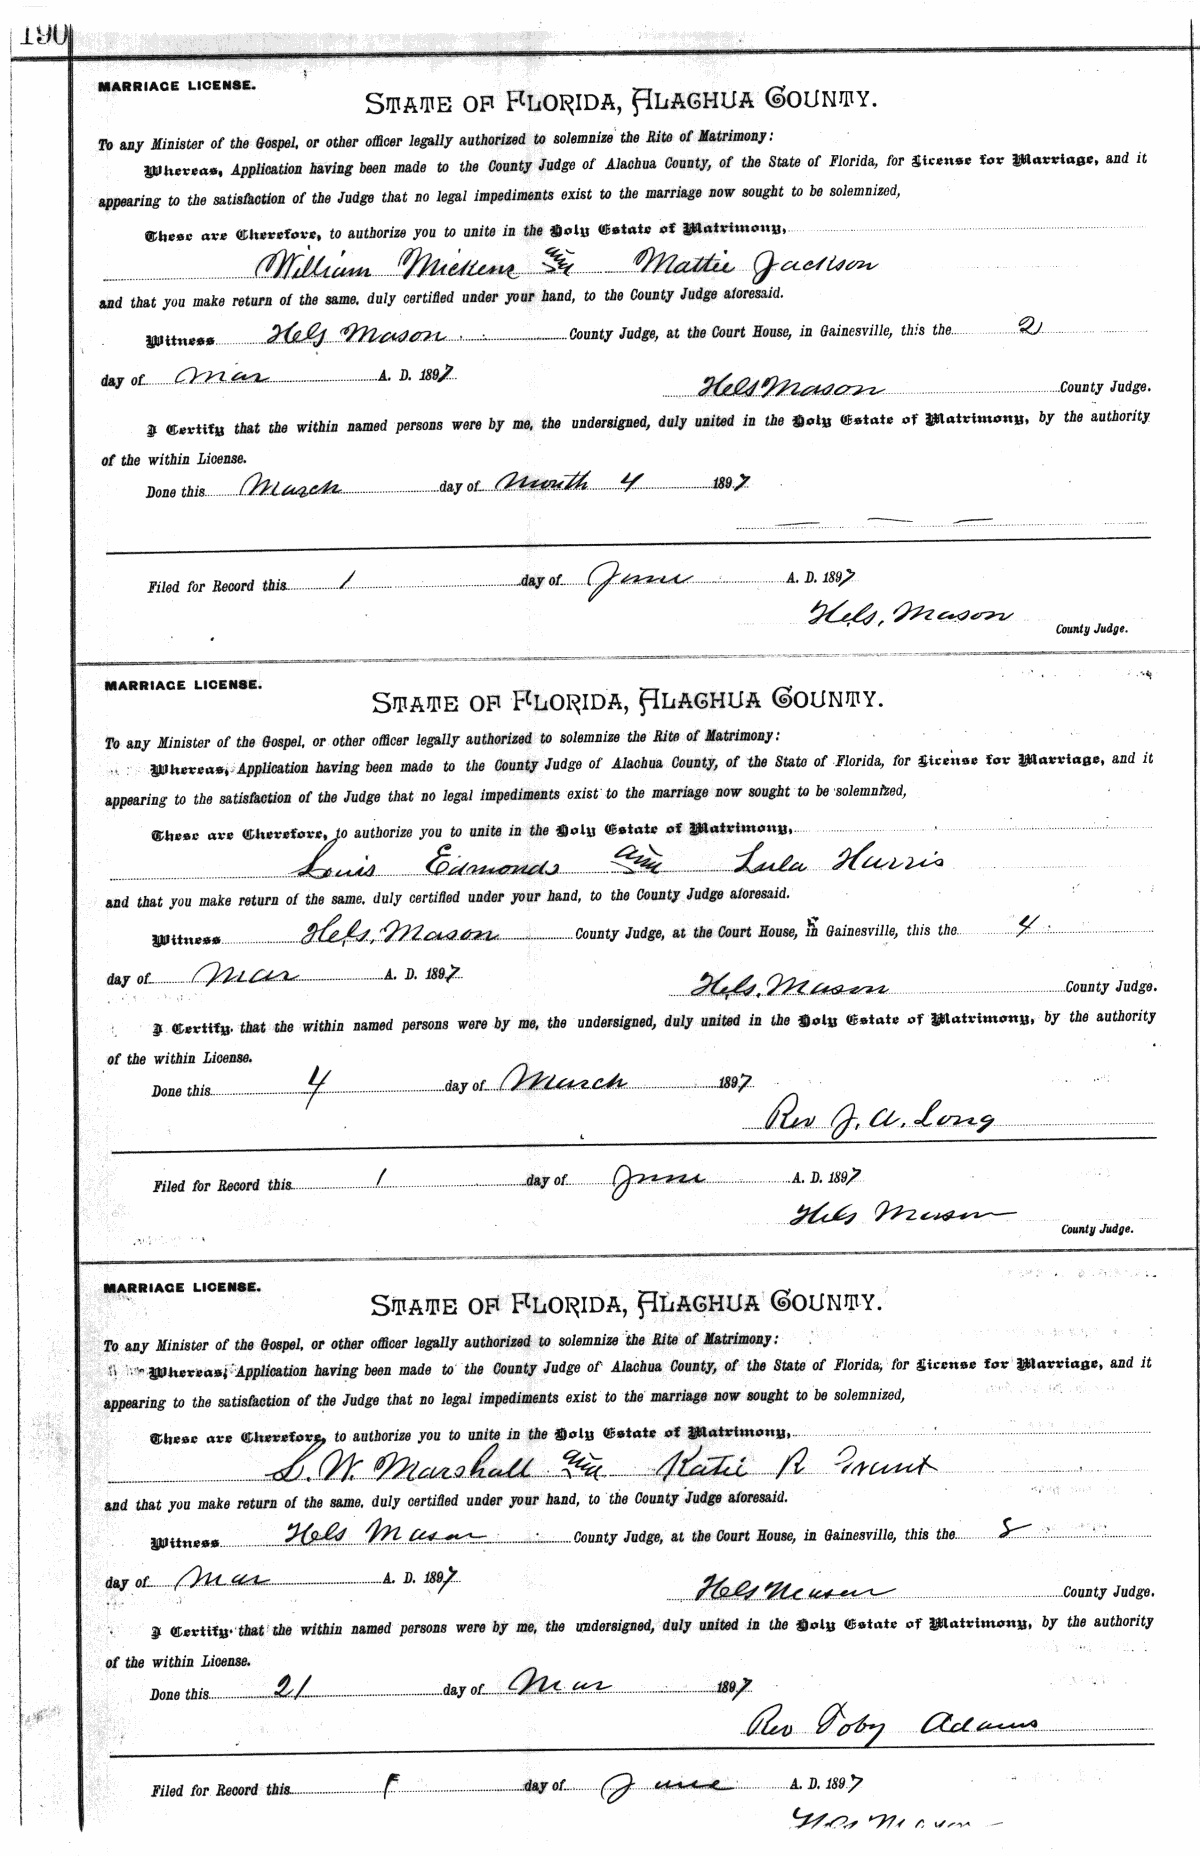 190
MARRIAGE LICENSE.
STATE OF FLORIDA, ALACHUA COUNTY.
To any Minister of the Gospel, or other officer legally authorized to solemnize the Rite of Matrimony:
Whereas, Application having been made to the County Judge of Alachua County, of the State of Florida, for License for Marriage, and it
appearing to the satisfaction of the Judge that no legal impediments exist to the marriage now sought to be solemnized,
These are Therefore, to authorize you to unite in the Holy Estate of Matrimony,
William Mickens and Mattie Jackson
and that you make return of the same, duly certified under your hand, to the County Judge aforesaid.
Witness Hels Mason County Judge, at the Court House, in Gainesville, this the 2
day of Mar A. D. 1897
Hels Mason County Judge.
I Certify that the within named persons were by me, the undersigned, duly united in the Holy Estate of Matrimony, by the authority
of the within License.
Done this March day of month 4 1897
Filed for Record this 1 day of June A. D. 1897
Hels. Mason
County Judge.
MARRIAGE LICENSE.
STATE OF FLORIDA, ALACHUA COUNTY.
To any Minister of the Gospel, or other officer legally authorized to solemnize the Rite of Matrimony:
Whereas, Application having been made to the County Judge of Alachua County, of the State of Florida, for License for Marriage, and it
appearing to the satisfaction of the Judge that no legal impediments exist to the marriage now sought to be solemnized,
These are Therefore, to authorize you to unite in the Holy Estate of Matrimony,
Louis Edmonds and Lula Harris
and that you make return of the same, duly certified under your hand, to the County Judge aforesaid.
Witness Hels. Mason County Judge, at the Court House, in Gainesville, this the 4
day of Mar A. D. 1897
Hels. Mason County Judge.
I Certify that the within named persons were by me, the undersigned, duly united in the Holy Estate of Matrimony, by the authority
of the within License.
Done this 4 day of March 1897
Rev J. A. Long
Filed for Record this 1 day of June A. D. 1897
Hels Mason
County Judge.
MARRIAGE LICENSE.
STATE OF FLORIDA, ALACHUA COUNTY.
To any Minister of the Gospel, or other officer legally authorized to solemnize the Rite of Matrimony:
Whereas, Application having been made to the County Judge of Alachua County, of the State of Florida, for License for Marriage, and it
appearing to the satisfaction of the Judge that no legal impediments exist to the marriage now sought to be solemnized,
These are Therefore, to authorize you to unite in the Holy Estate of Matrimony,
L. W. Marshall and Katie R
and that you make return of the same, duly certified under your hand, to the County Judge aforesaid.
Witness Hels Mason County Judge, at the Court House, in Gainesville, this the 8
day of Mar A. D. 1897
Hels Mason County Judge.
I Certify that the within named persons were by me, the undersigned, duly united in the Holy Estate of Matrimony, by the authority
of the within License.
Done this 21 day of Mar 1897
Rev Toby Adams
Filed for Record this day of June A. D. 1897
Hels Mason